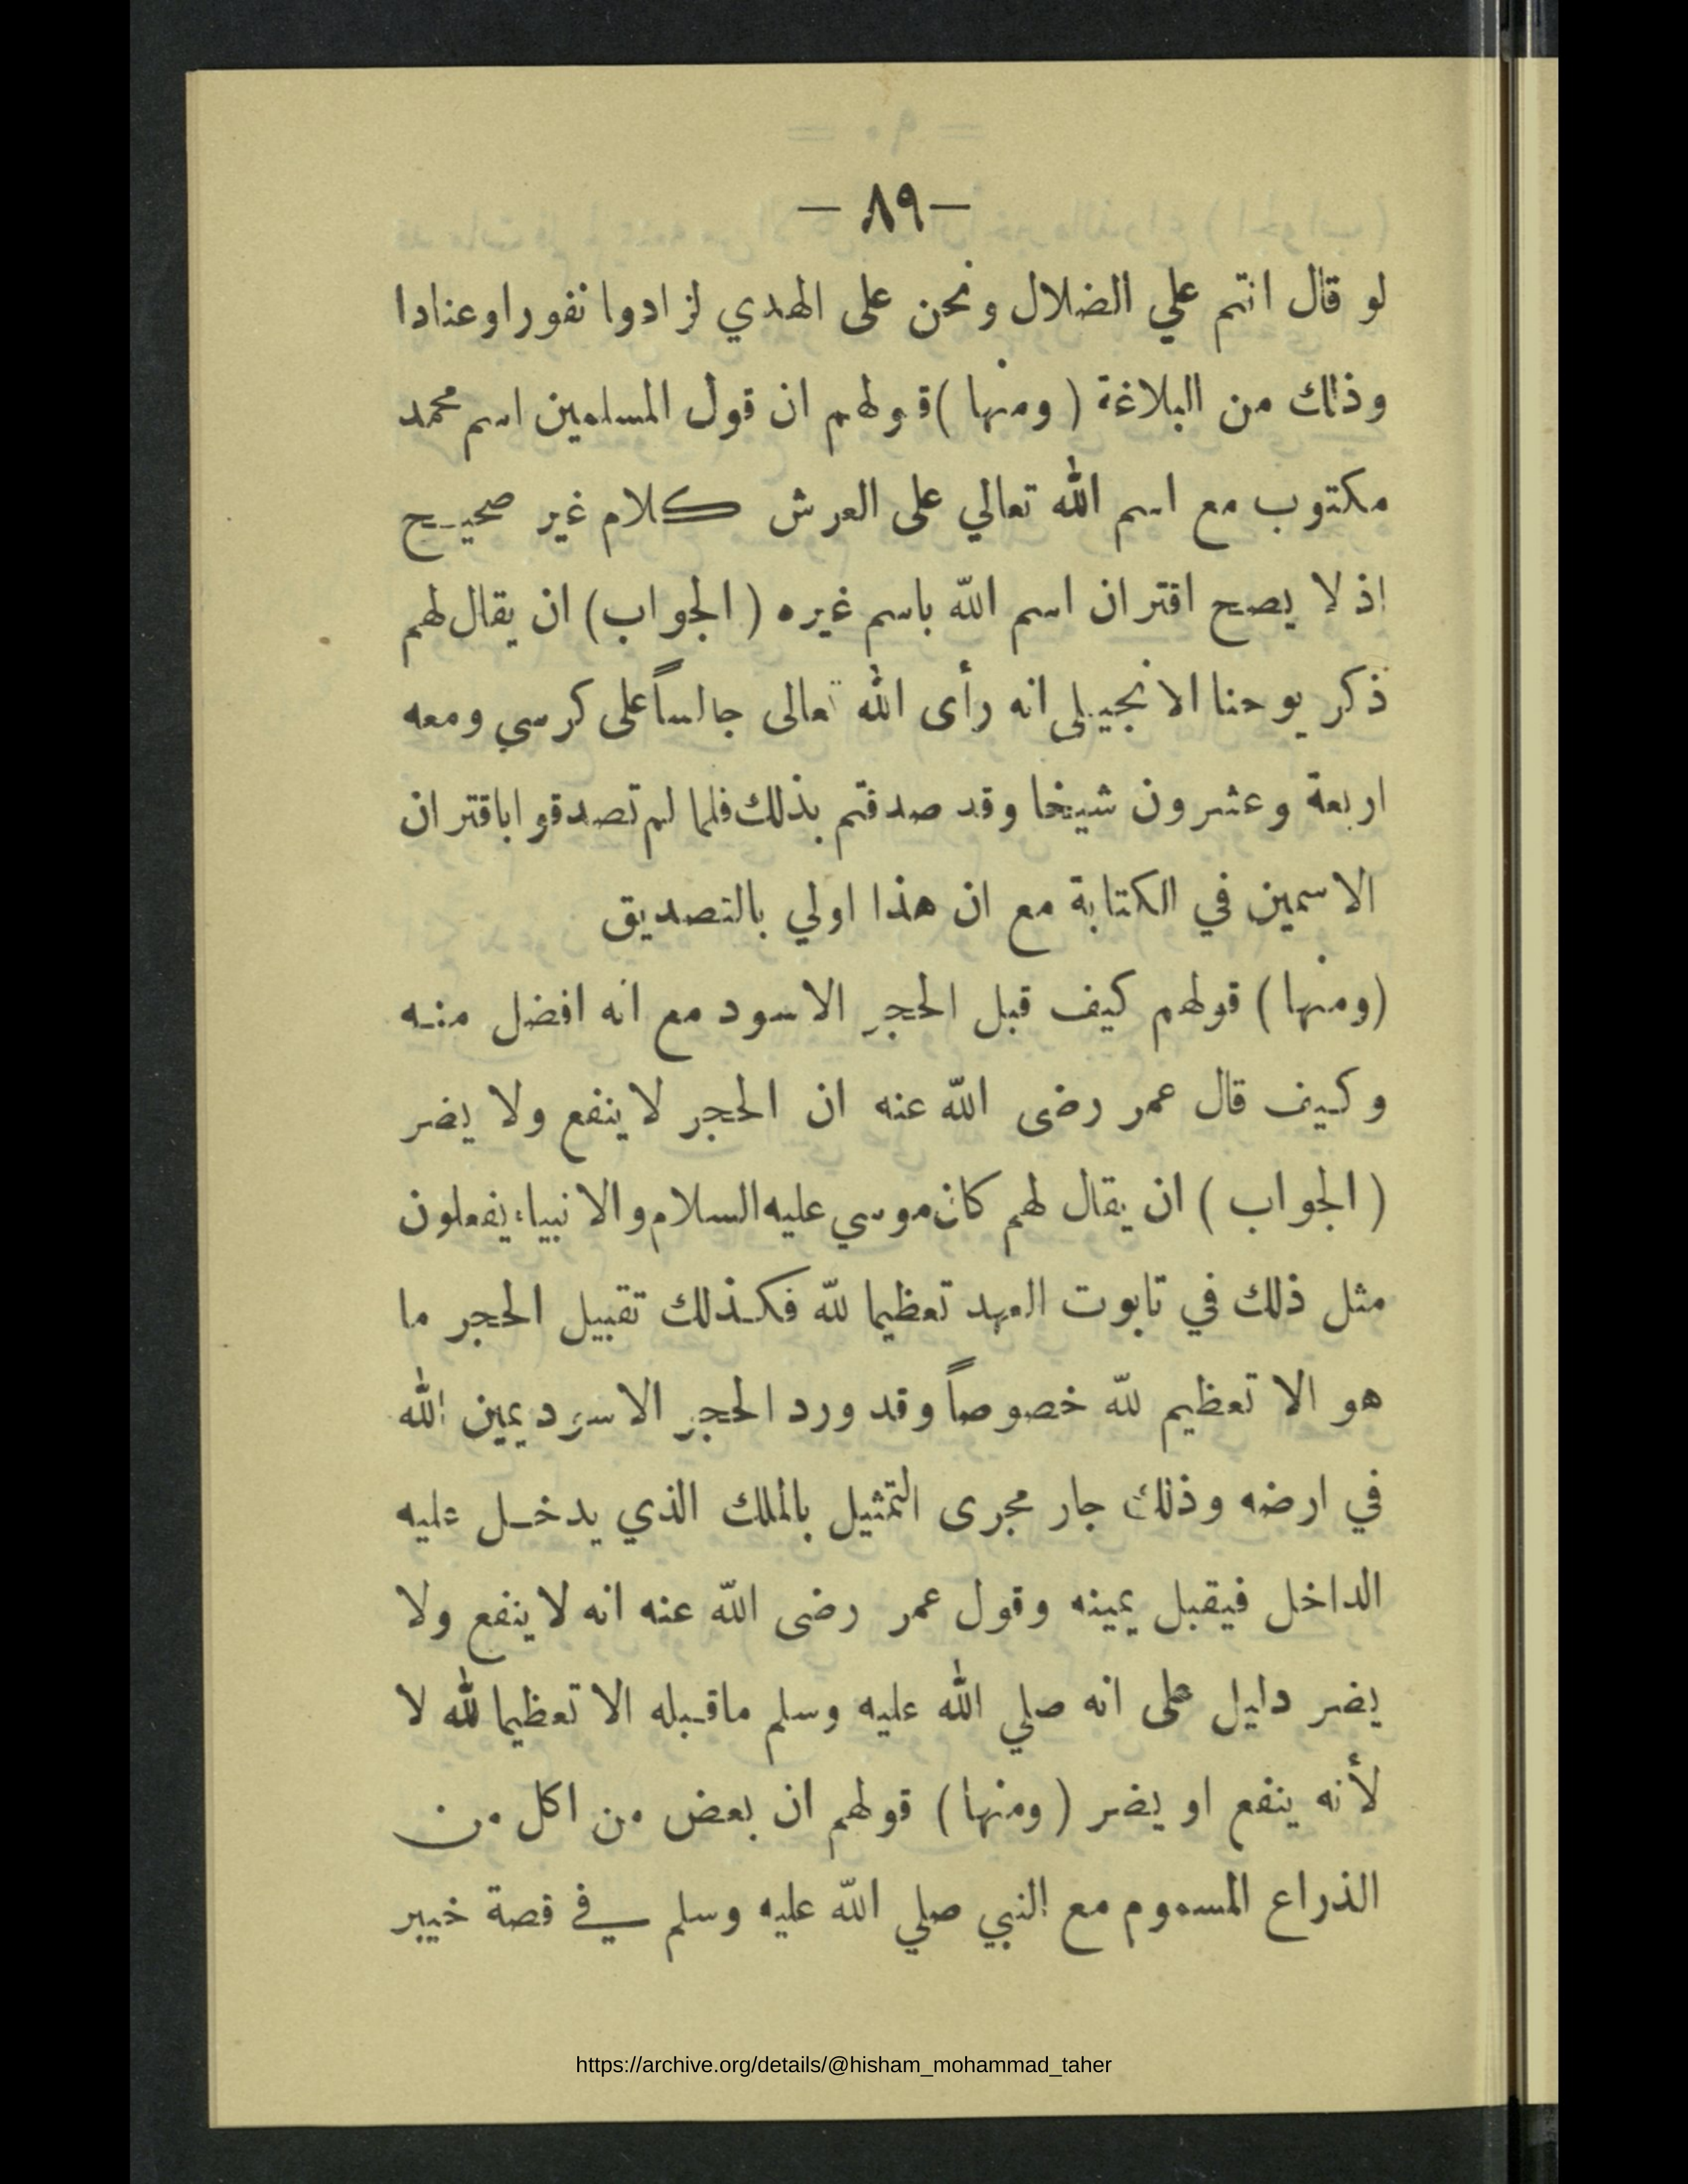 — ٨٩ —
لو قال انتم علي الضلال ونحن على الهدي لزادوا نفورا وعنادا
وذلك من البلاغة ( ومنها ) قولهم ان قول المسلمين اسم محمد
مكتوب مع اسم الله تعالي على العرش كلام غير صحيح
اذ لا يصح اقتران اسم الله باسم غيره ( الجواب ) ان يقال لهم
ذكر يوحنا الانجيلى انه رأى الله تعالى جالساً على كرسي ومعه
اربعة وعشرون شيخا وقد صدقتم بذلك فلما لم تصدقوا باقتران
الاسمين في الكتابة مع ان هذا اولي بالتصديق
(ومنها ) قولهم كيف قبل الحجر الاسود مع انه افضل منه
وكيف قال عمر رضى الله عنه ان الحجر لا ينفع ولا يضر
( الجواب ) ان يقال لهم كان موسي عليه السلام والانبياء يفعلون
مثل ذلك في تابوت العهد تعظيما لله فكذلك تقبيل الحجر ما
هو الا تعظيم لله خصوصاً وقد ورد الحجر الاسود يمين الله
في ارضه وذلك جار مجرى التمثيل بالملك الذي يدخل عليه
الداخل فيقبل يمينه وقول عمر رضى الله عنه انه لا ينفع ولا
يضر دليل على انه صلي الله عليه وسلم ماقبله الا تعظيما لله لا
لأنه ينفع او يضر ( ومنها ) قولهم ان بعض من اكل من
الذراع المسموم مع النبي صلي الله عليه وسلم في قصة خيبر
https://archive.org/details/@hisham_mohammad_taher